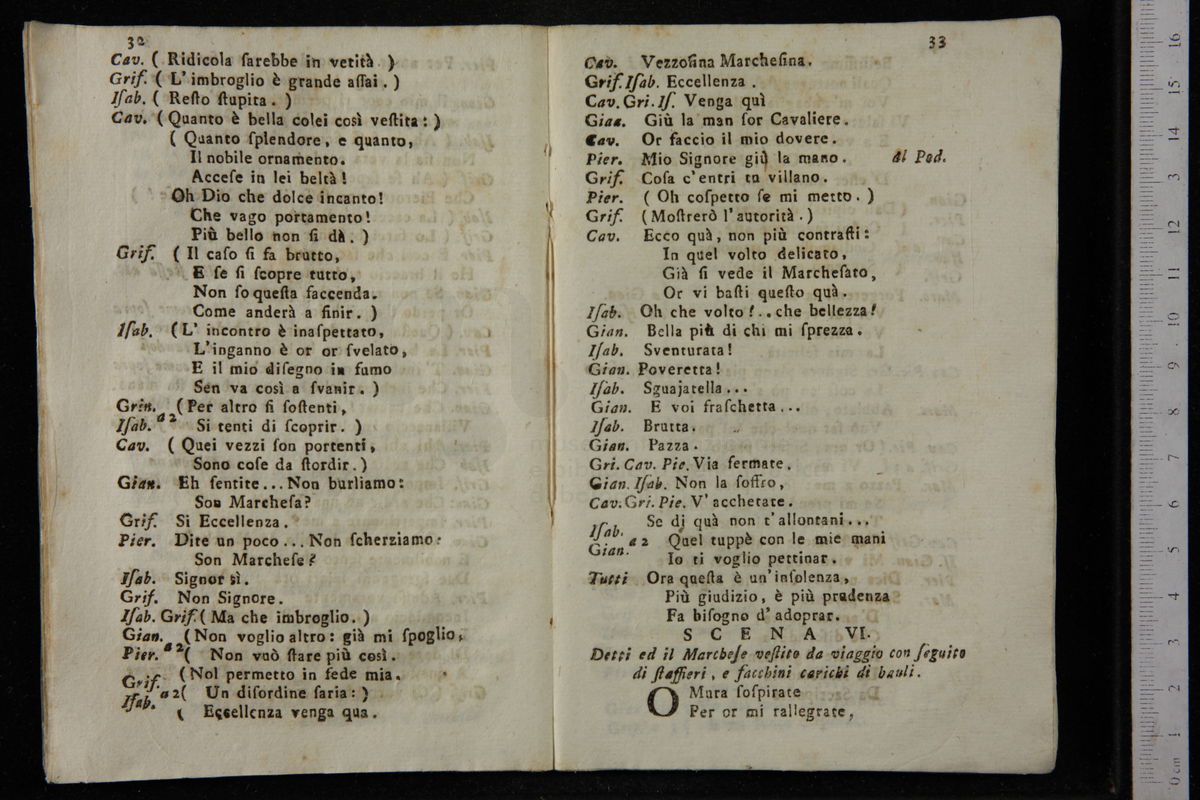 32
Cav. ( Ridicola ſarebbe in vetità. )
Grif. ( L' imbroglio è grande aſſai. )
Iſab. ( Reſto ſtupita. )
Cav. ( Quanto è bella colei così veſtita: )
( Quanto ſplendore, e quanto,
Il nobile ornamento.
Acceſe in lei beltà!
Oh Dio che dolce incanto!
Che vago portamento!
Più bello non ſi dà. )
Grif. ( Il caſo ſi fa brutto,
E ſe ſi ſcopre tutto,
Non ſo queſta faccenda.
Come anderà a finir. )
Iſab. (L' incontro è inaſpettato,
L'inganno è or or ſvelato,
E il mio diſegno in fumo
Sen va così a ſvanir. )
Grin. (Per altro ſi ſoſtenti,
Iſab. a 2 Si tenti di ſcoprir. )
Cav. ( Quei vezzi ſon portenti,
Sono coſe da ſtordir.)
Gian. Eh ſentite... Non burliamo:
Son Marcheſa?
Grif. Si Eccellenza.
Pier. Dite un poco... Non ſcherziamo:
Son Marcheſe?
Iſab. Signor sì.
Grif. Non Signore.
Iſab. Grif. ( Ma che imbroglio. )
Gian. (Non voglio altro: già mi ſpoglio,
Pier. a 2( Non vuò ſtare più così.
Grif. (Nol permetto in fede mia.
a 2( Un diſordine ſaria: )
Iſab. ( Eccellenza venga qua.
33
Cav. Vezzoſina Marcheſina.
Grif. Iſab. Eccellenza.
Cav. Gri. Iſ. Venga quì
Gian. Giù la man ſor Cavaliere.
Cav. Or faccio il mio dovere.
Pier. Mio Signore giù la mano. al Pod.
Grif. Coſa c'entri tu villano.
Pier. ( Oh coſpetto ſe mi metto. )
Grif. (Moſtrerò l'autorità.)
Cav. Ecco quà, non più contraſti:
In quel volto delicato,
Già ſi vede il Marcheſato,
Or vi baſti queſto quà.
Iſab. Oh che volto!.. che bellezza!
Gian. Bella più di chi mi ſprezza.
Iſab. Sventurata!
Gian. Poveretta!
Iſab. Sguajatella...
Gian. E voi fraſchetta...
Iſab. Brutta.
Gian. Pazza.
Gri. Cav. Pie. Via fermate.
Gian. Iſab. Non la ſoffro,
Cav. Gri. Pie. V' acchetate.
Iſab. Se di quà non t'allontani...
a 2 Quel tuppè con le mie mani
Gian. Io ti voglio pettinar.
Tutti Ora queſta è un'inſolenza,
Più giudizio, è più prudenza
Fa biſogno d'adoprar.
SCENA VI.
Detti ed il Marcheſe veſtito da viaggio con ſeguito
di ſtaffieri, e facchini carichi di bauli.
O Mura ſoſpirate
Per or mi rallegrate,
0 cm 1 2 3 4 5 6 7 8 9 10 11 12 13 14 15 16